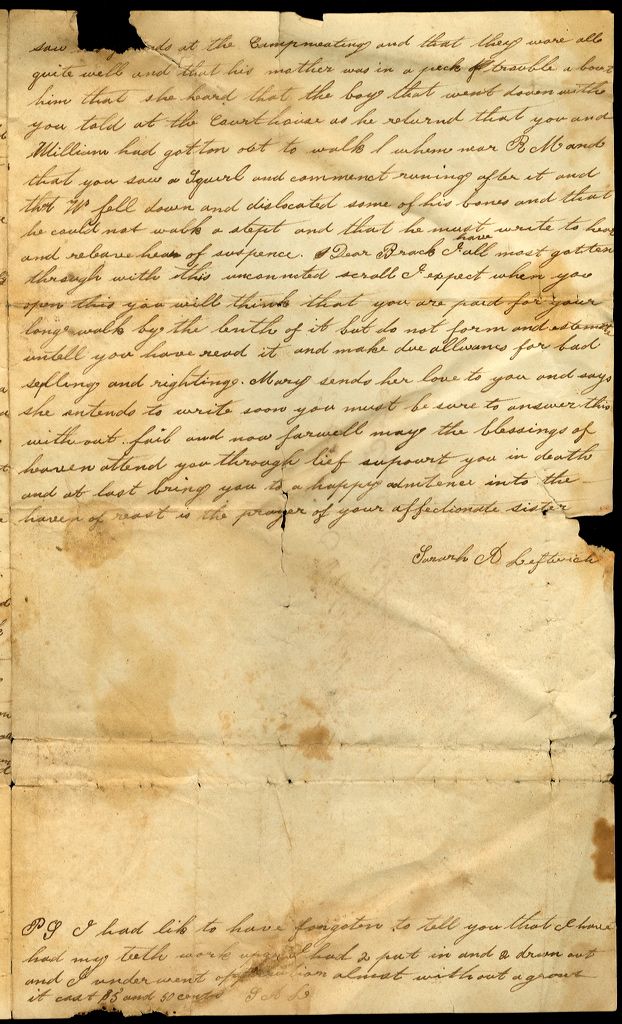 saw ds at the Campmeating and that they ware all
quite well and that his mother was in a peck of trouble a bout
him that she heard that the boy that went down with
you told at the Courthouse as he returnd that you and
William had gotton obt to walk when near R M and
that you saw a Squirl and commenct runing after it and
that Wm fell down and dislocated some of his bones and that
he could not walk a stept and that he must write to hear
and releave hear of suspence. Dear Brack I have all most gotten
through with this unconnected scroll I expect when you
open this you will think that you are paid for your
long walk by the lenth of it but do not form and estemate
untell you have read it and make due allwanes for bad
spelling and righting. Mary sends her love to you and says
she antends to write soon you must be sure to answer this
with out fail and now farwell may the blessings of
heaven attend you through lief supourt you in death
and at last bring you to a happy admitence into the
haven of reast is the prayer of your affectionate sister
Sarah A Leftwich
PS I had lik to have forgoten to tell you that I have
had my teeth work upon I had 2 put in and 2 drawn out
and I underwent opperation almost without a groan
it cast $5 and 50 cents S A L